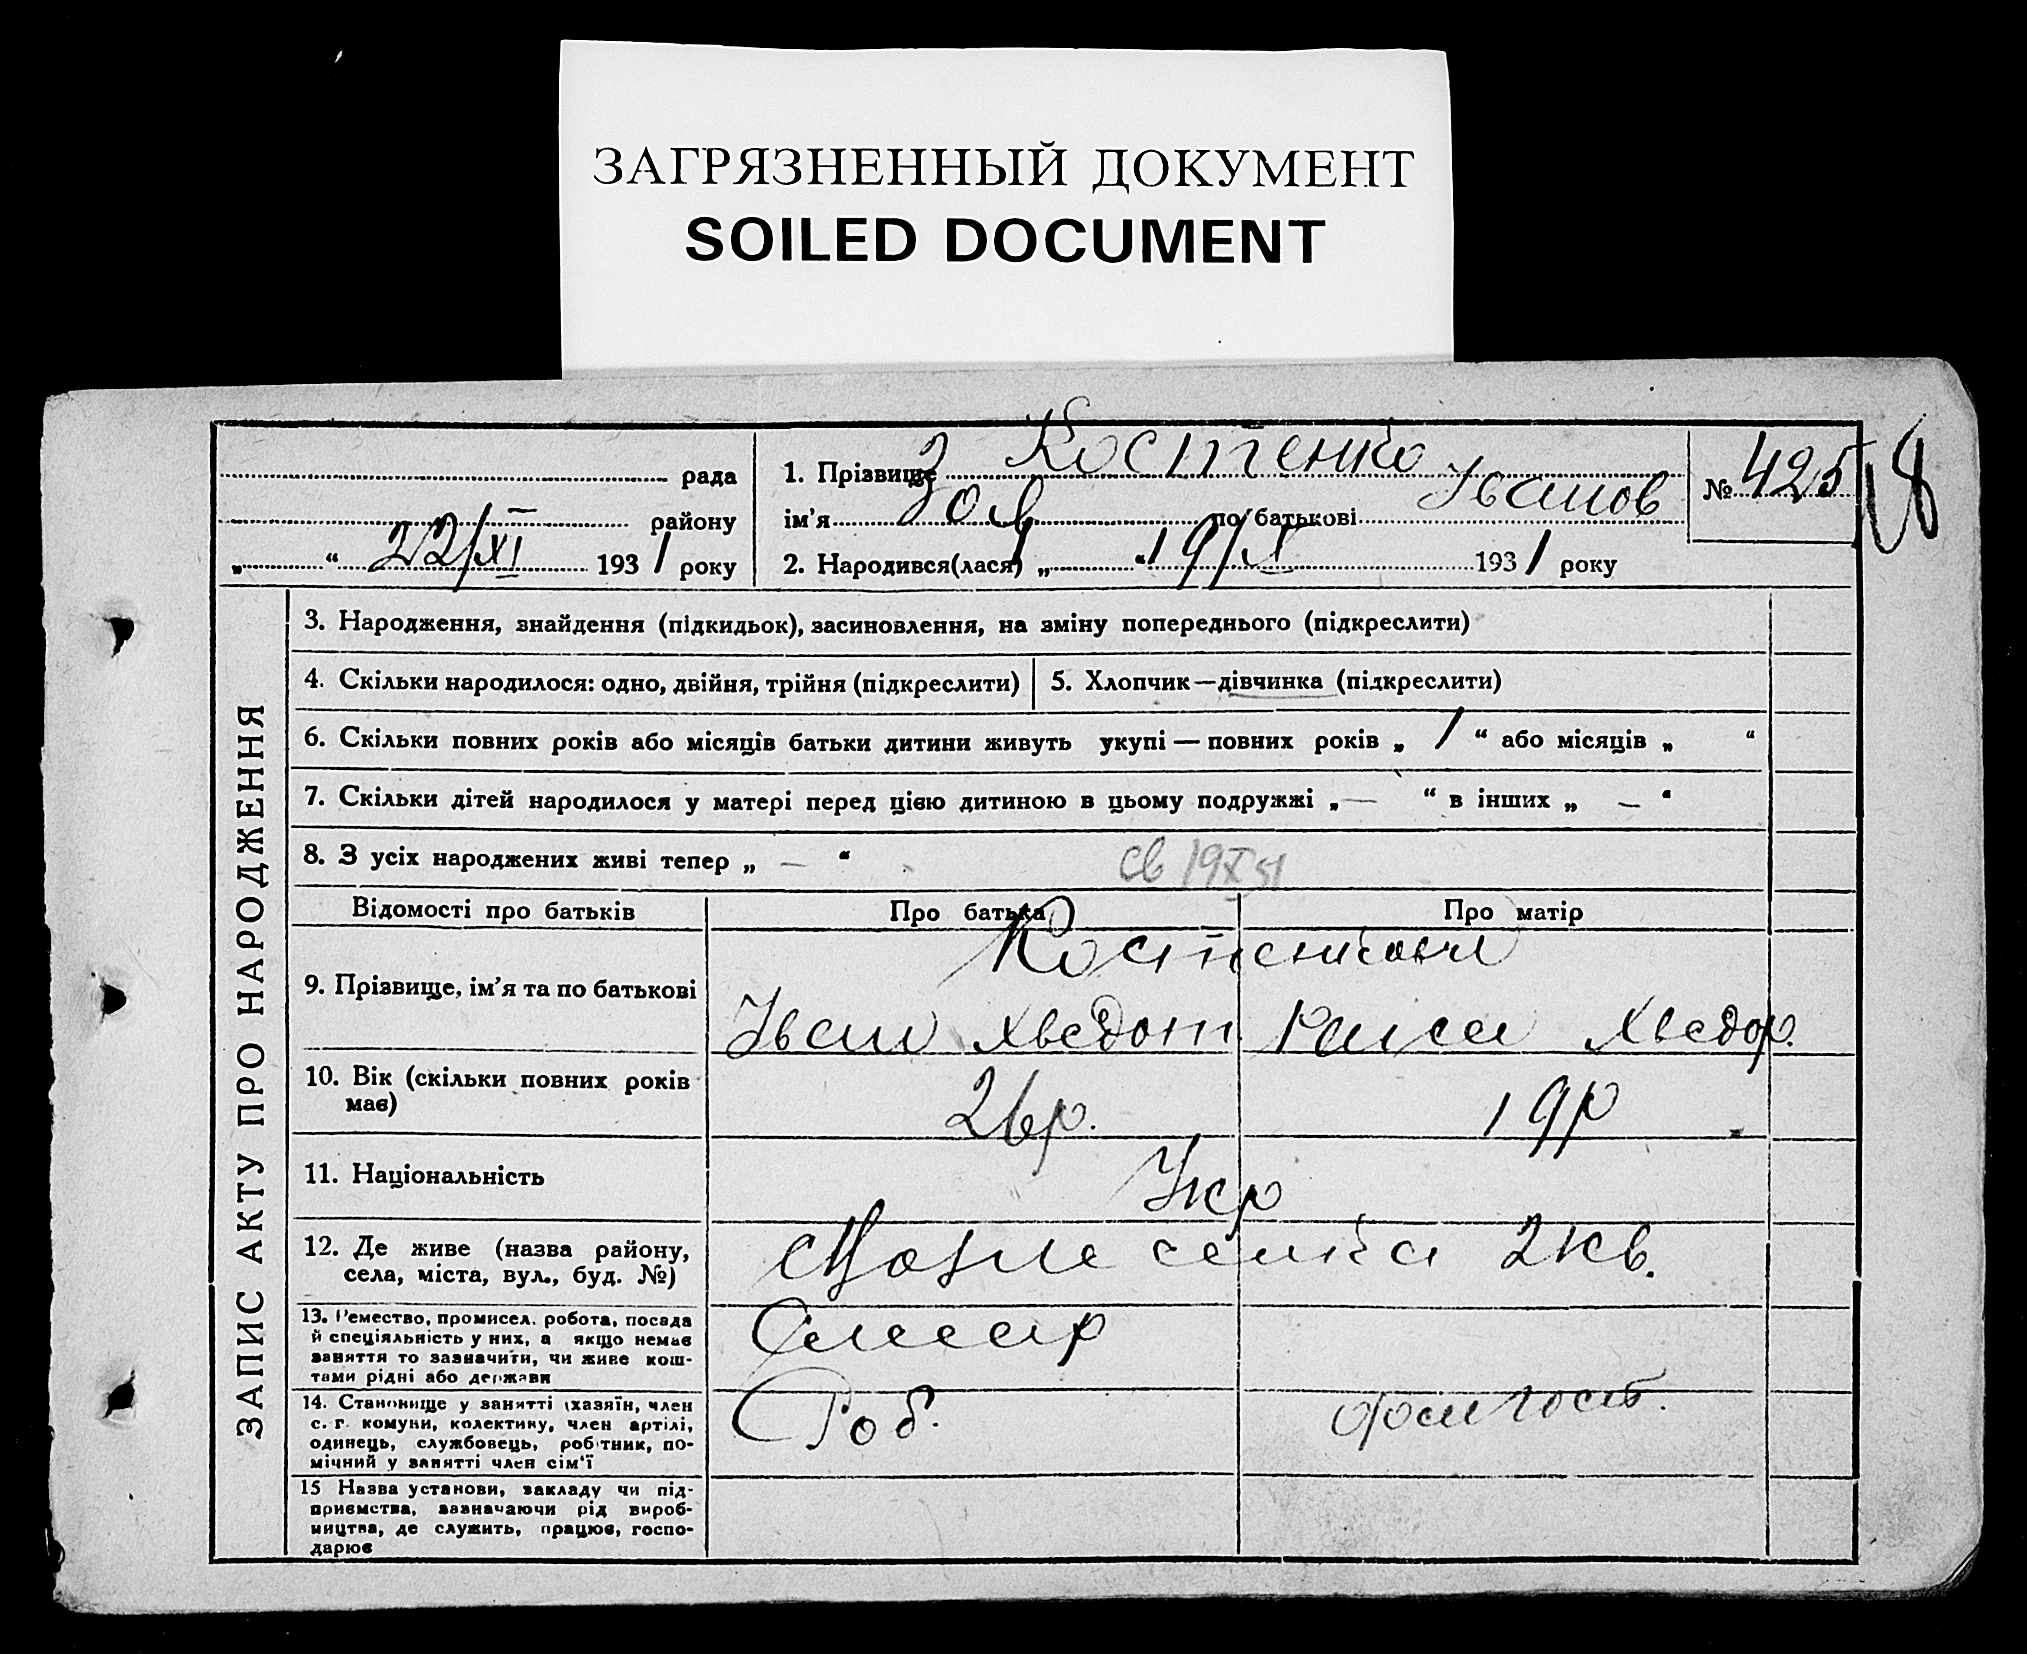 ЗАГРЯЗНЕННЫЙ ДОКУМЕНТ
SOILED DOCUMENT
рада
району
„ “ 22/XI 1931 року
1. Прізвище Костенко
ім’я Зоя по батькові Іванов
2. Народився(лася) „ “ 19/X 1931 року
№ 425
18
ЗАПИС АКТУ ПРО НАРОДЖЕННЯ
3. Народження, знайдення (підкидьок), засиновлення, на зміну попереднього (підкреслити)
4. Скільки народилося: одно, двійня, трійня (підкреслити)
5. Хлопчик—дівчинка (підкреслити)
6. Скільки повних років або місяців батьки дитини живуть укупі — повних років „ 1 “ або місяців „ “
7. Скільки дітей народилося у матері перед цією дитиною в цьому подружжі „ — “ в інших „ — “
8. З усіх народжених живі тепер „ — “
св 19X
Відомості про батьків
Про батька
Про матір
9. Прізвище, ім’я та по батькові
Іван Хведот
Раиса Хведор.
10. Вік (скільки повних років
має)
26р.
19р
11. Національність
Укр
12. Де живе (назва району,
села, міста, вул., буд. №)
2кв.
13. Ремество, промисел, робота, посада
й спеціяльність у них, а якщо немає
заняття то зазначити, чи живе кош-
тами рідні або держави
Слесар
14. Становище у занятті (хазяїн, член
с. г. комуни, колективу, член артілі,
одинець, службовець, робітник, по-
мічний у занятті член сім‘ї
Роб.
15 Назва установи, закладу чи під-
приємства, зазначаючи рід вироб-
ництва, де служить, працює, госпо-
дарює